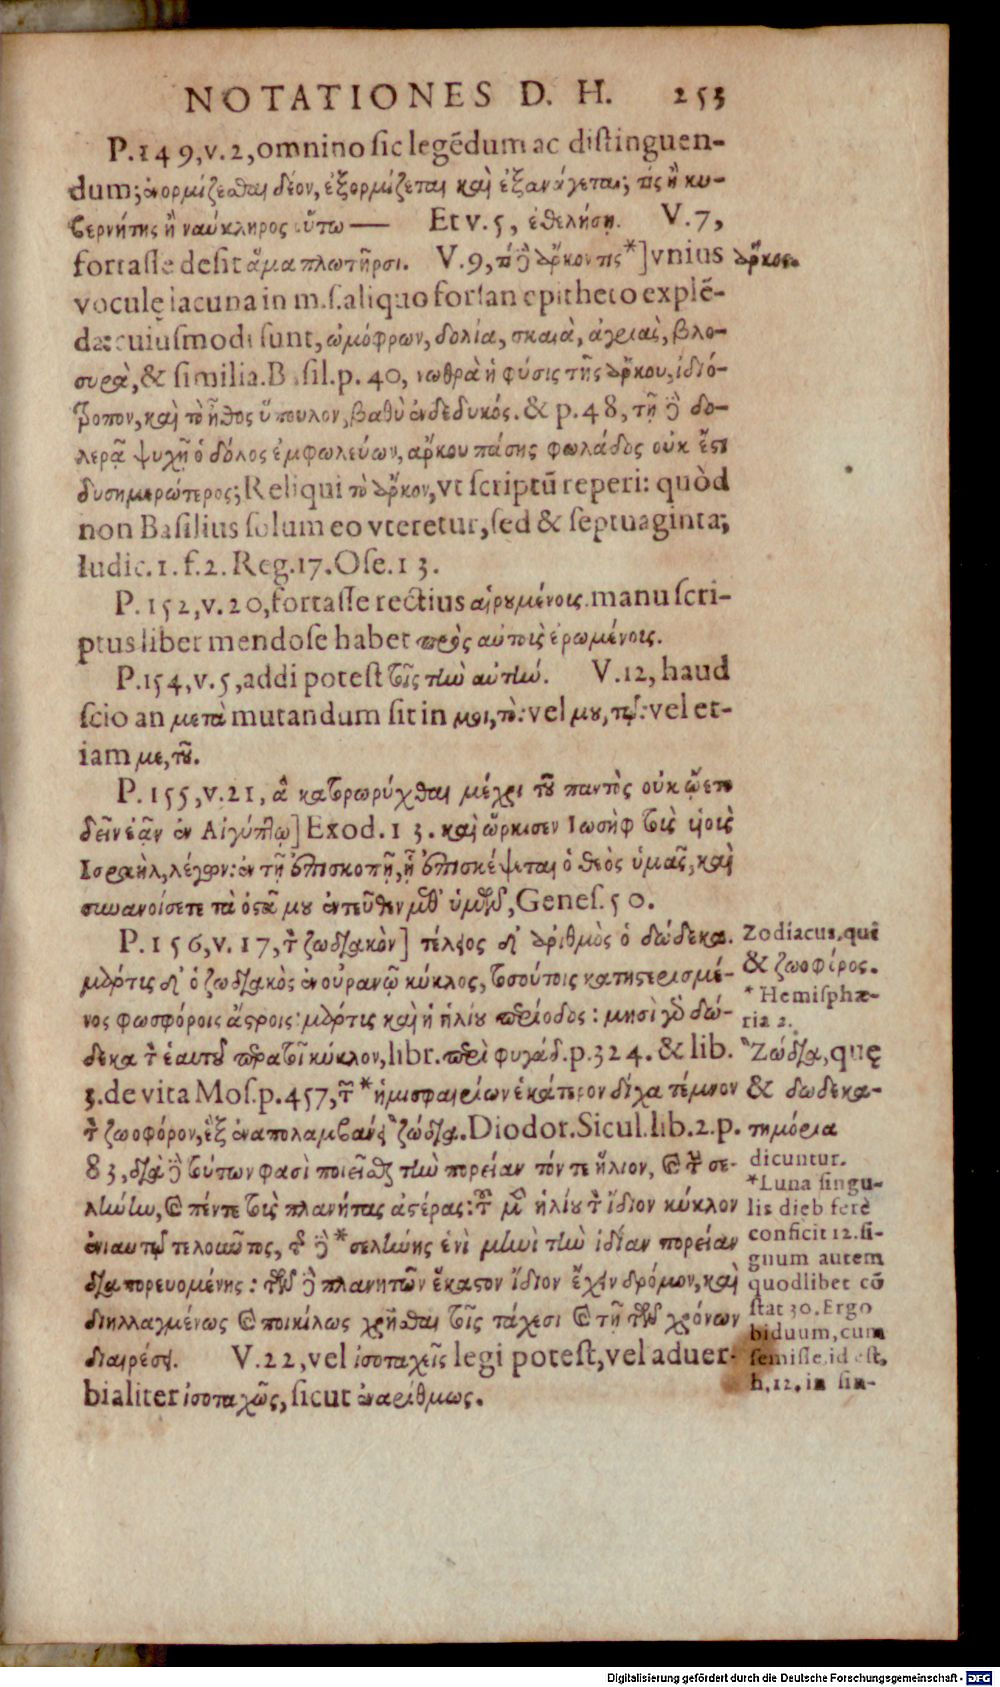 NOTATIONES D. H. 253
P.149,v.2,omnino sic legẽdum ac distinguen-
dum; ἐνορμίζεσθαι δέον, ἐξορμίζεται καὶ ἐξανάγεται; τίς ἢ κυ-
βερνήτης ἢ ναύκληρος οὕτω — Et v.5, ἐθελήση. V.7,
fortasse desit ἅμα πλωτῆρσι. V.9, τὸ δὲ ἄρκον τις*] vnius
ἄρκος.
voculę lacuna in m.s.aliquo forsan epitheto explẽ-
da: cuiusmodi sunt, ὠμόφρων, δολία, σκαιὰ, ἀγριαὶ, βλο-
συρὰ, & similia. Basil.p. 40, νωθρὰ ἡ φύσις τῆς ἄρκου, ἰδιό-
τροπον, καὶ τὸ ἦθος ὕπουλον, βαθὺ ἐνδεδυκός. & p.48, τῇ δὲ δο-
λερᾷ ψυχῇ ὁ δόλος ἐμφωλεύων, ἄρκου πάσης φωλάδος οὐκ ἔστι
δυσημερώτερος; Reliqui τὸ ἄρκον, vt scriptũ reperi: quòd
non Basilius solum eo vteretur, sed & septuaginta;
Iudic.1. f.2. Reg.17. Ose.13.
P.152,v.20, fortasse rectius αἱρουμένοις. manu scri-
ptus liber mendose habet πρὸς αὐτοῖς ἐρωμένοις.
P.154,v.5, addi potest τοῖς τὴν αὐτήν. V.12, haud
scio an μετὰ mutandum sit in μοι, τὸ: vel μου, τῷ: vel et-
iam με, τοῦ.
P.155,v.21, ἃ κατορωρύχθαι μέχρι τοῦ παντὸς οὐκ ᾤετο
δεῖν ἐᾷν ἐν Αἰγύπτῳ] Exod.13. καὶ ὥρκισεν Ιωσὴφ τοὺς υἱοὺς
Ισραὴλ, λέγων: ἐν τῇ ἐπισκοπῇ, ᾗ ἐπισκέψεται ὁ θεὸς ὑμᾶς, καὶ
συνανοίσετε τὰ ὀστᾶ μου ἐντεῦθεν μεθ' ὑμῶν, Genes.50.
P.156,v.17, τὸν ζωδιακὸν] τέλειος δ' ἀριθμὸς ὁ δώδεκα.
μάρτυς δ' ὁ ζωδιακὸς ἐν οὐρανῷ κύκλος, τοσούτοις κατηστερισμέ-
νος φωσφόροις ἄστροις: μάρτυς καὶ ἡ ἡλίου περίοδος: μησὶ γὰρ δώ-
δεκα τὸν ἑαυτοῦ περατοῖ κύκλον, libr. περὶ φυγάδ.p.324. & lib.
3.de vita Mos.p.457, τῶν *ἡμισφαιρίων ἑκάτερον δίχα τέμνον
τὸν ζωοφόρον, ἓξ ἐναπολαμβάνει "ζώδια. Diodor.Sicul.lib.2.p.
83, διὰ δὲ τούτων φασὶ ποιεῖσθαι τὴν πορείαν τόν τε ἥλιον, καὶ τὴν σε-
λήνην, καὶ πέντε τοὺς πλανήτας ἀστέρας: τοῦ μὲν ἡλίου τὸν ἴδιον κύκλον
ἐνιαυτῷ τελοῦντος, τῆς δὲ *σελήνης ἑνὶ μηνὶ τὴν ἰδίαν πορείαν
διαπορευομένης: τῶν δὲ πλανητῶν ἕκαστον ἴδιον ἔχειν δρόμον, καὶ
διηλλαγμένως καὶ ποικίλως χρῆσθαι τοῖς τάχεσι καὶ τῇ τῶν χρόνων
διαιρέσει. V.22, vel ἰσοταχεῖς legi potest, vel aduer-
bialiter ἰσοταχῶς, sicut ἐναρίθμως.
Zodiacus, quê
& ζωοφόρος.
* Hemisphæ-
ria 2.
"Ζώδια, quę
& δωδεκα-
τημόρια
dicuntur.
*Luna singu-
lis dieb ferè
conficit 12. si-
gnum autem
quodlibet cõ
stat 30. Ergo
biduum, cum
semisse, id est,
h, 12, in sin-
Digitalisierung gefördert durch die Deutsche Forschungsgemeinschaft - DFG